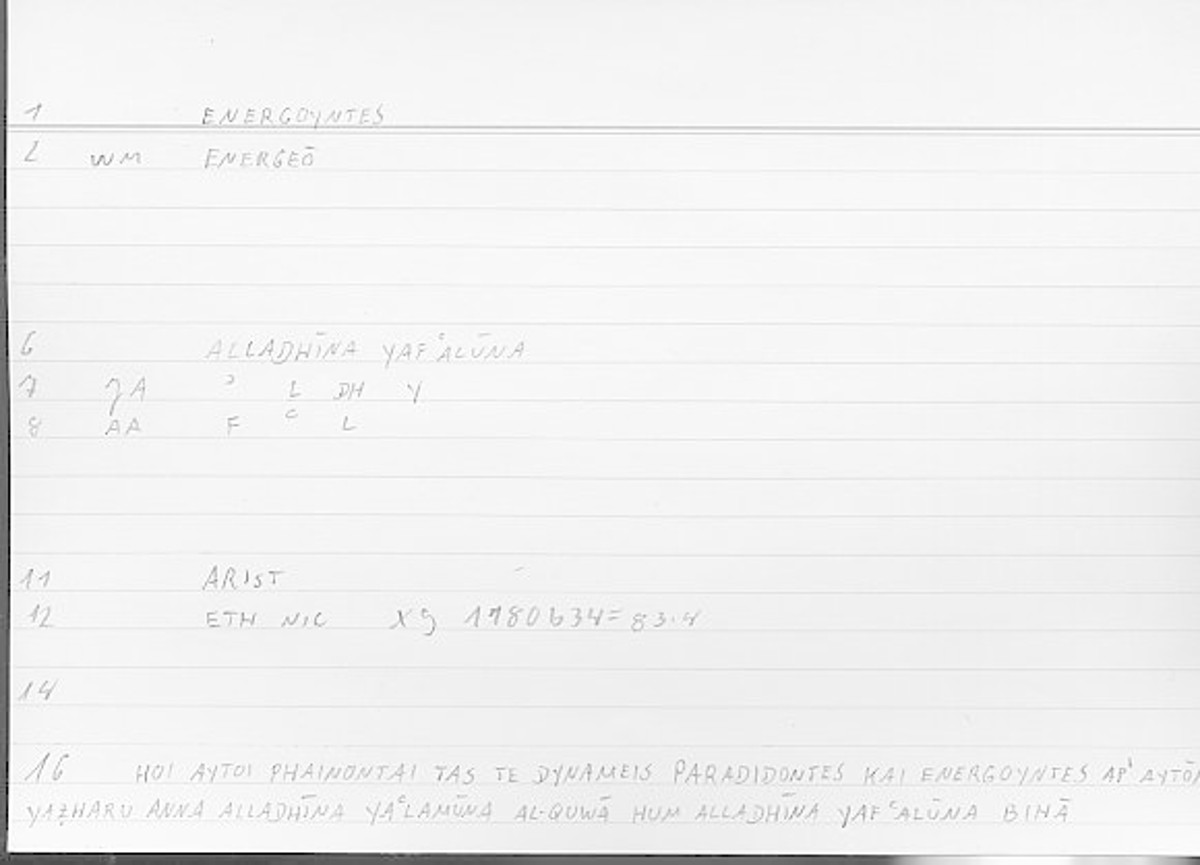 1 ENERGOYNTES
2 WM ENERGEŌ
6 ALLADHĪNA YAFʿALŪNA
7 JA ʾ L DH Y
8 AA F ʿ L
11 ARIST
12 ETH NIC X9 1780b34=83.4
14
16 HOI AYTOI PHAINONTAI TAS TE DYNAMEIS PARADIDONTES KAI ENERGOYNTES AP' AYTŌN
YAẒHARU ANNA ALLADHĪNA YAʿLAMŪNA AL-QUWĀ HUM ALLADHĪNA YAFʿALŪNA BIHĀ